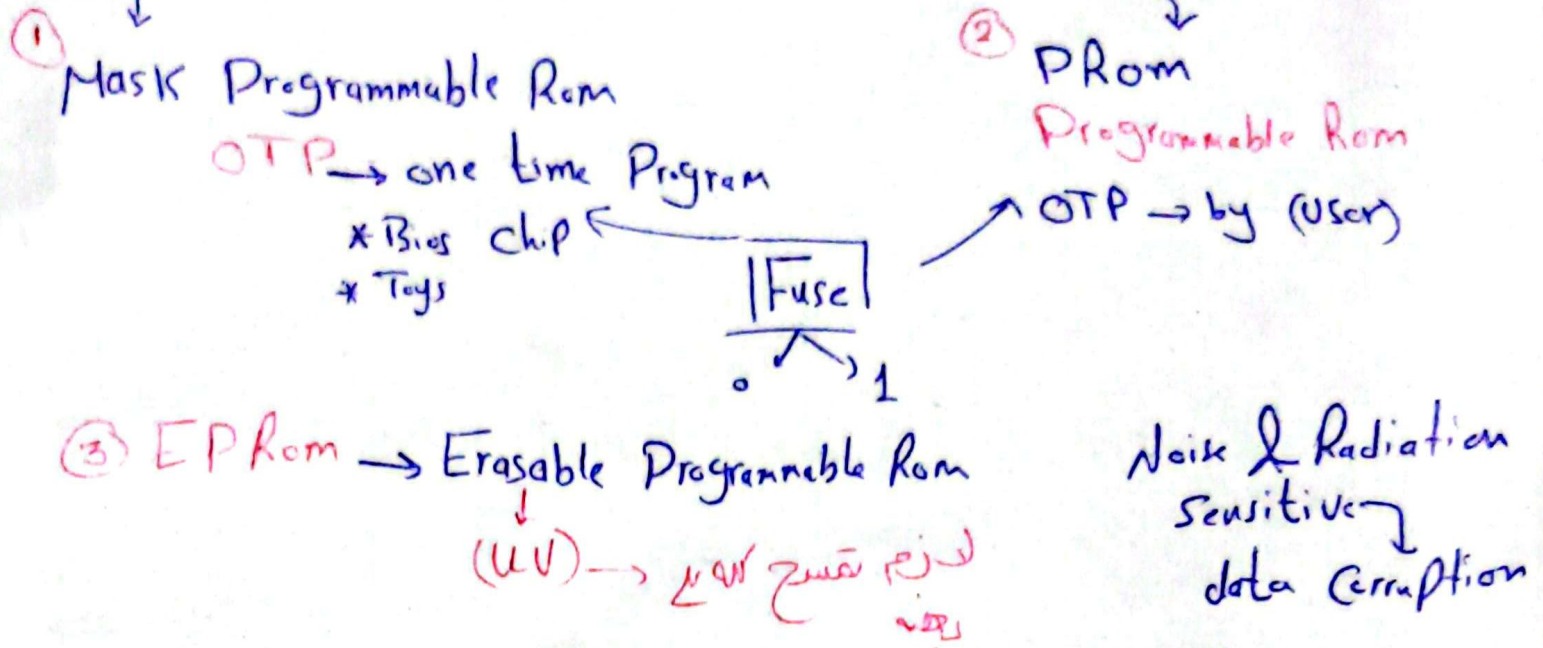 ① Mask Programmable Rom
OTP → one time Program
* Bios chip
* Toys
② PRom
Programmable Rom
OTP → by (User)
Fuse
0 1
③ EPRom → Erasable Programmable Rom
(UV) → لازم تمسح كله
Noise & Radiation
Sensitive
data Corruption